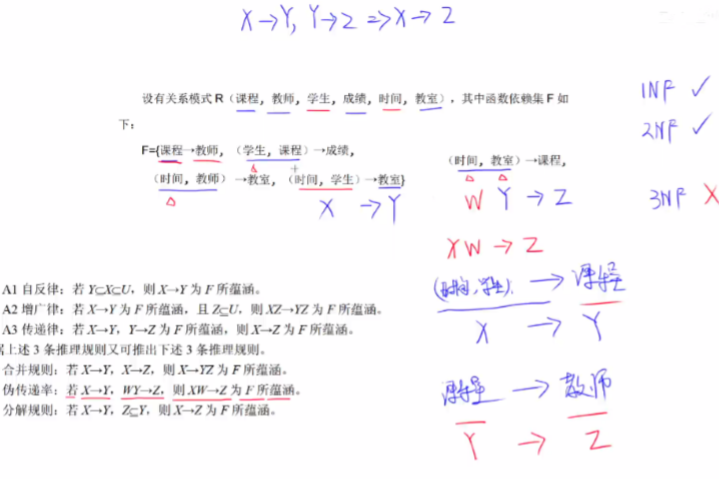 X→Y, Y→Z ⇒ X→Z
设有关系模式 R（课程，教师，学生，成绩，时间，教室），其中函数依赖集 F 如
下：
F={课程→教师，（学生，课程）→成绩，（时间，教室）→课程，
（时间，教师）→教室，（时间，学生）→教室}
X → Y
W Y → Z
XW → Z
1NF ✓
2NF ✓
3NF X
A1 自反律：若 Y⊆X⊆U，则 X→Y 为 F 所蕴涵。
A2 增广律：若 X→Y 为 F 所蕴涵，且 Z⊆U，则 XZ→YZ 为 F 所蕴涵。
A3 传递律：若 X→Y，Y→Z 为 F 所蕴涵，则 X→Z 为 F 所蕴涵。
上述 3 条推理规则又可推出下述 3 条推理规则。
合并规则：若 X→Y，X→Z，则 X→YZ 为 F 所蕴涵。
伪传递率：若 X→Y，WY→Z，则 XW→Z 为 F 所蕴涵。
分解规则：若 X→Y，Z⊆Y，则 X→Z 为 F 所蕴涵。
(时间，学生) → 课程
X → Y
课程 → 教师
Y → Z